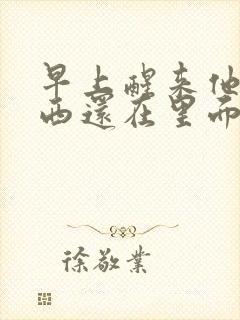 早上醒来他
西还在里而
徐敬業